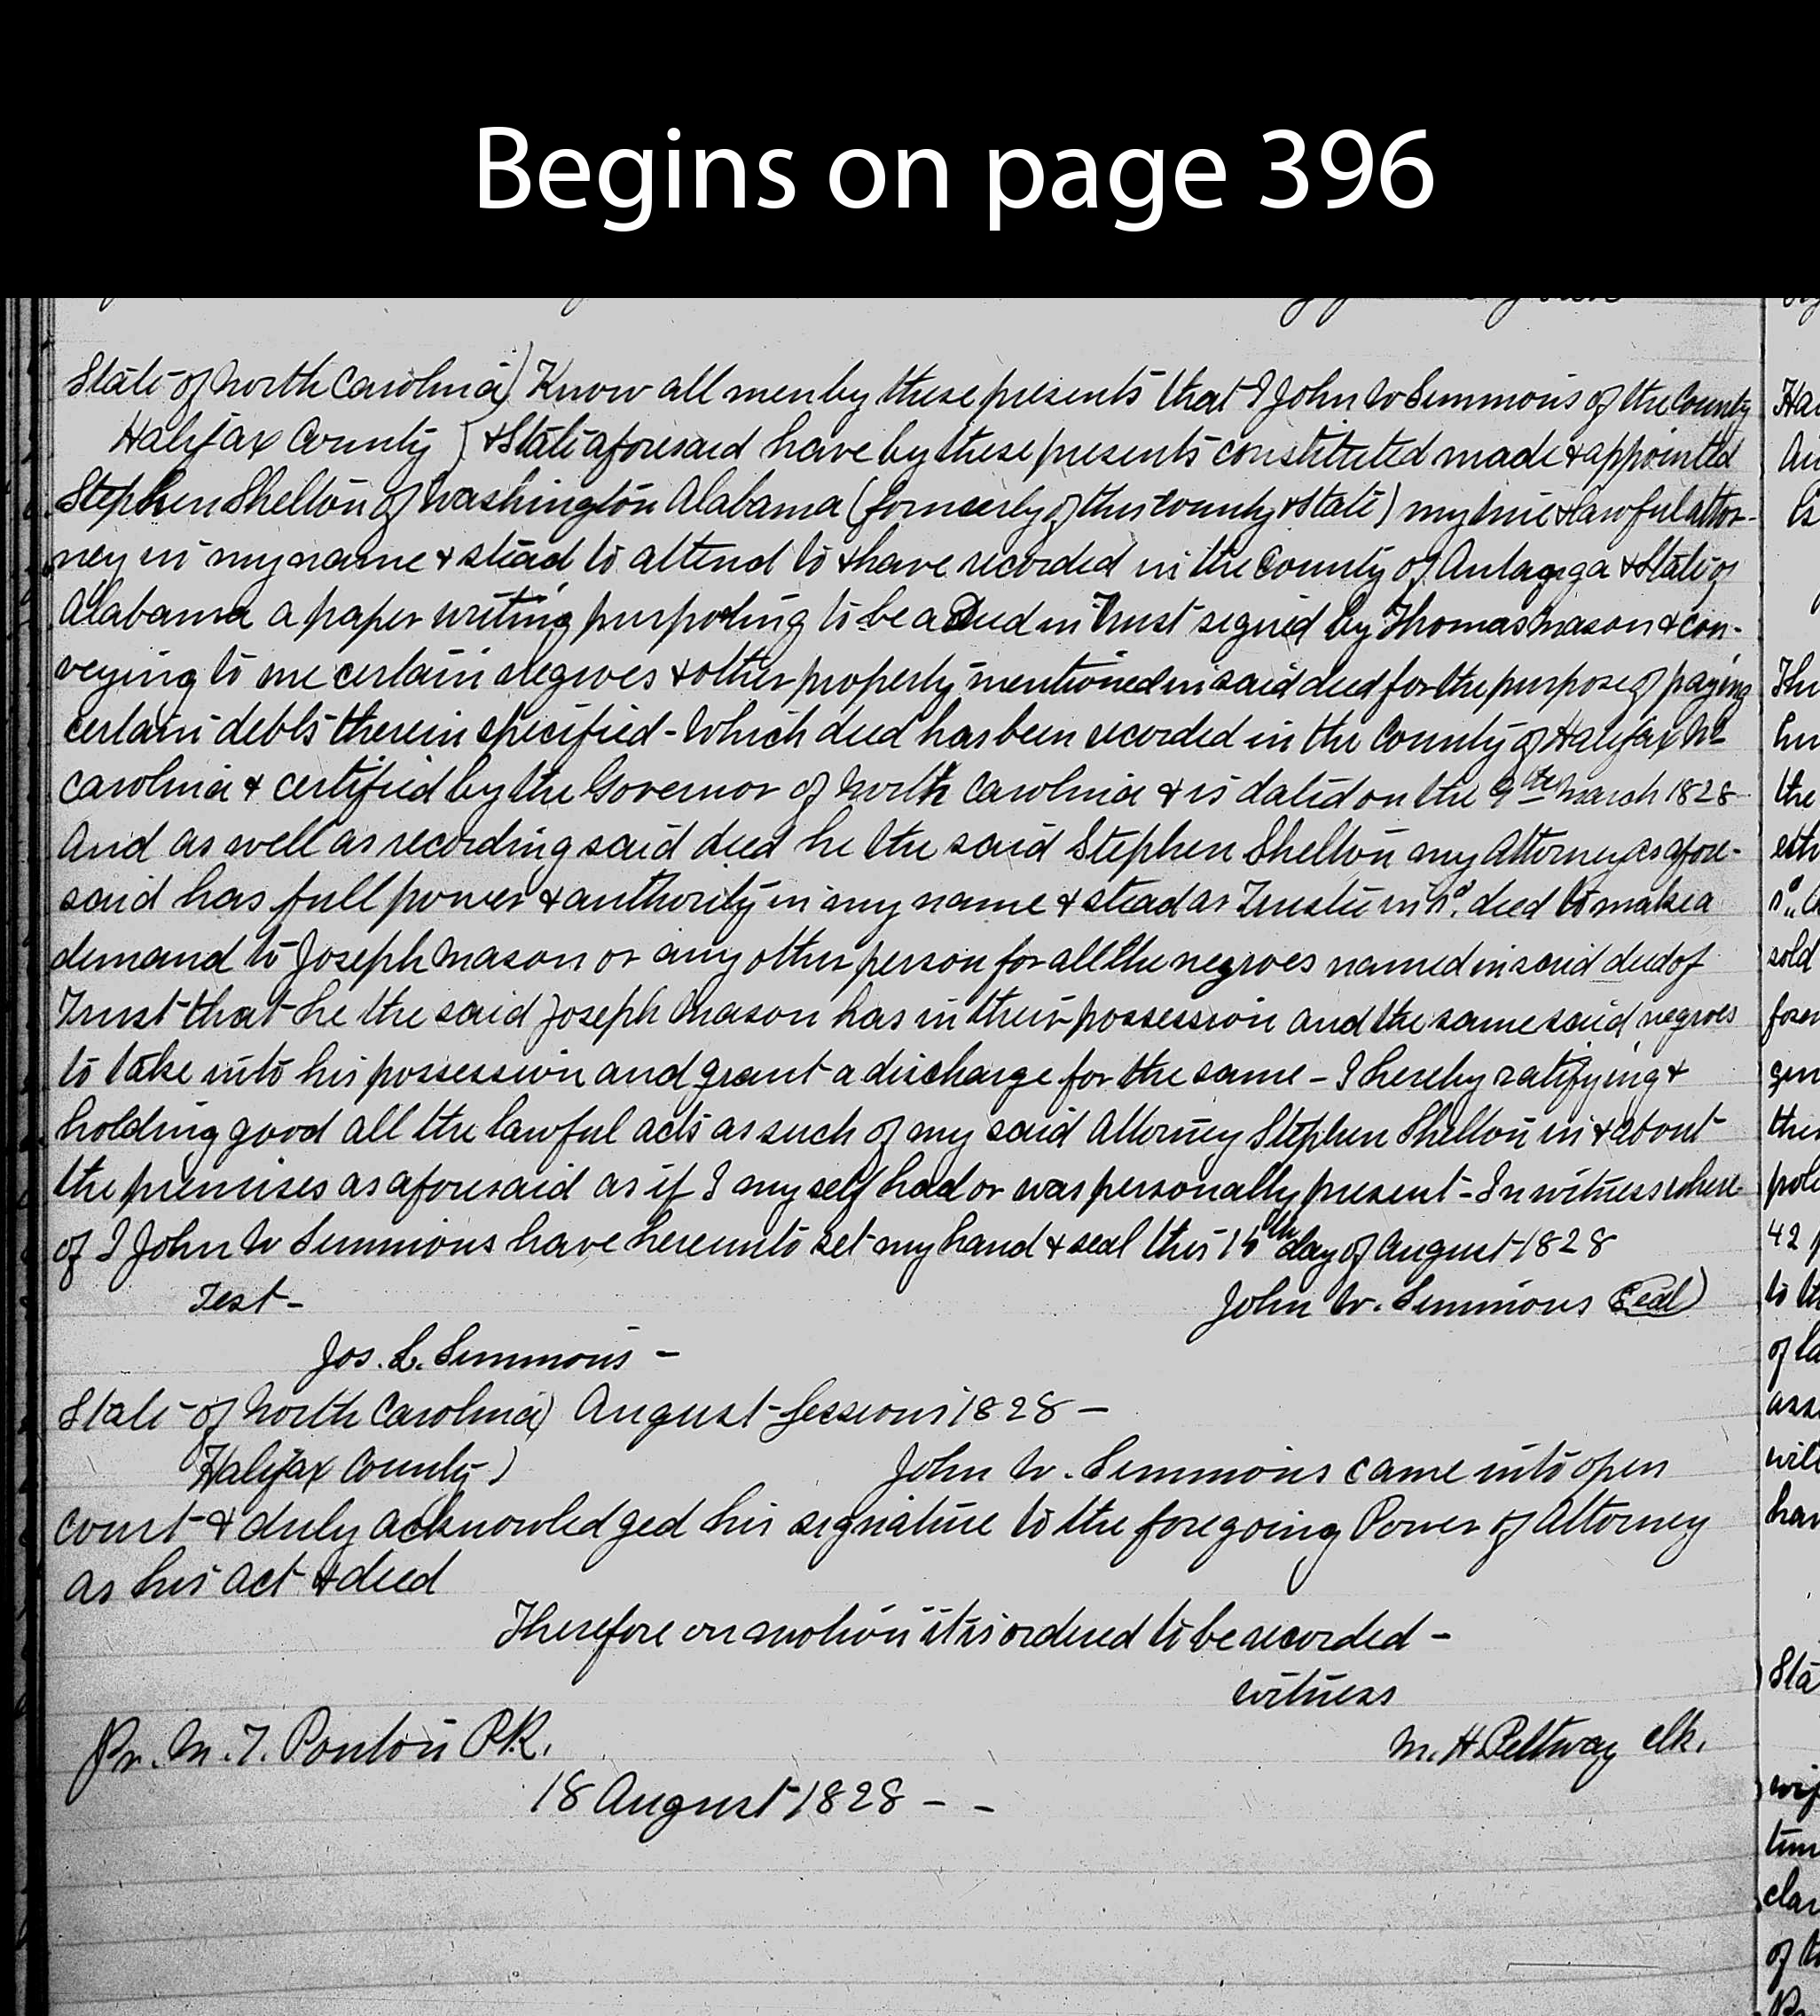 Begins on page 396
State of North Carolina) Know all men by these presents that I John W Simmons of the County
Halifax County } & State aforesaid have by these presents constituted made & appointed
Stephen Shelton of Washington Alabama (formerly of this county & State) my true & lawful attor-
ney in my name & stead to attend to & have recorded in the County of Autagga & State of
Alabama a paper writing purporting to be a Deed in Trust signed by Thomas Mason & con-
veying to me certain negroes & other property mentioned in said deed for the purpose of paying
certain debts therein specified - Which deed has been recorded in the County of Halifax No
Carolina & certified by the Governor of North Carolina & is dated on the 9th March 1828
And as well as recording said deed he the said Stephen Shelton my Attorney as afore-
said has full power & authority in my name & stead as Trustee in sd. deed to make a
demand to Joseph Mason or any other person for all the negroes named in said deed of
Trust that he the said Joseph Mason has in their possession and the same said negroes
to take into his possession and grant a discharge for the same - I hereby ratifying &
holding good all the lawful acts as such of my said Attorney Stephen Shelton in & about
the premises as aforesaid as if I myself had or was personally present - In witness where
of I John W Simmons have hereunto set my hand & seal this day of August 1828
Test - John W. Simmons (Seal)
Jos. L. Simmons -
State of North Carolina) August Sessions 1828 -
Halifax County ) John W. Simmons came into open
court & duly acknowledged his signature to the foregoing Power of Attorney
as his act & deed
Therefore on motion it is ordered to be recorded -
witness
Pr. M. T. Ponton P.R. M. H. Pettway clk.
18 August 1828 - -